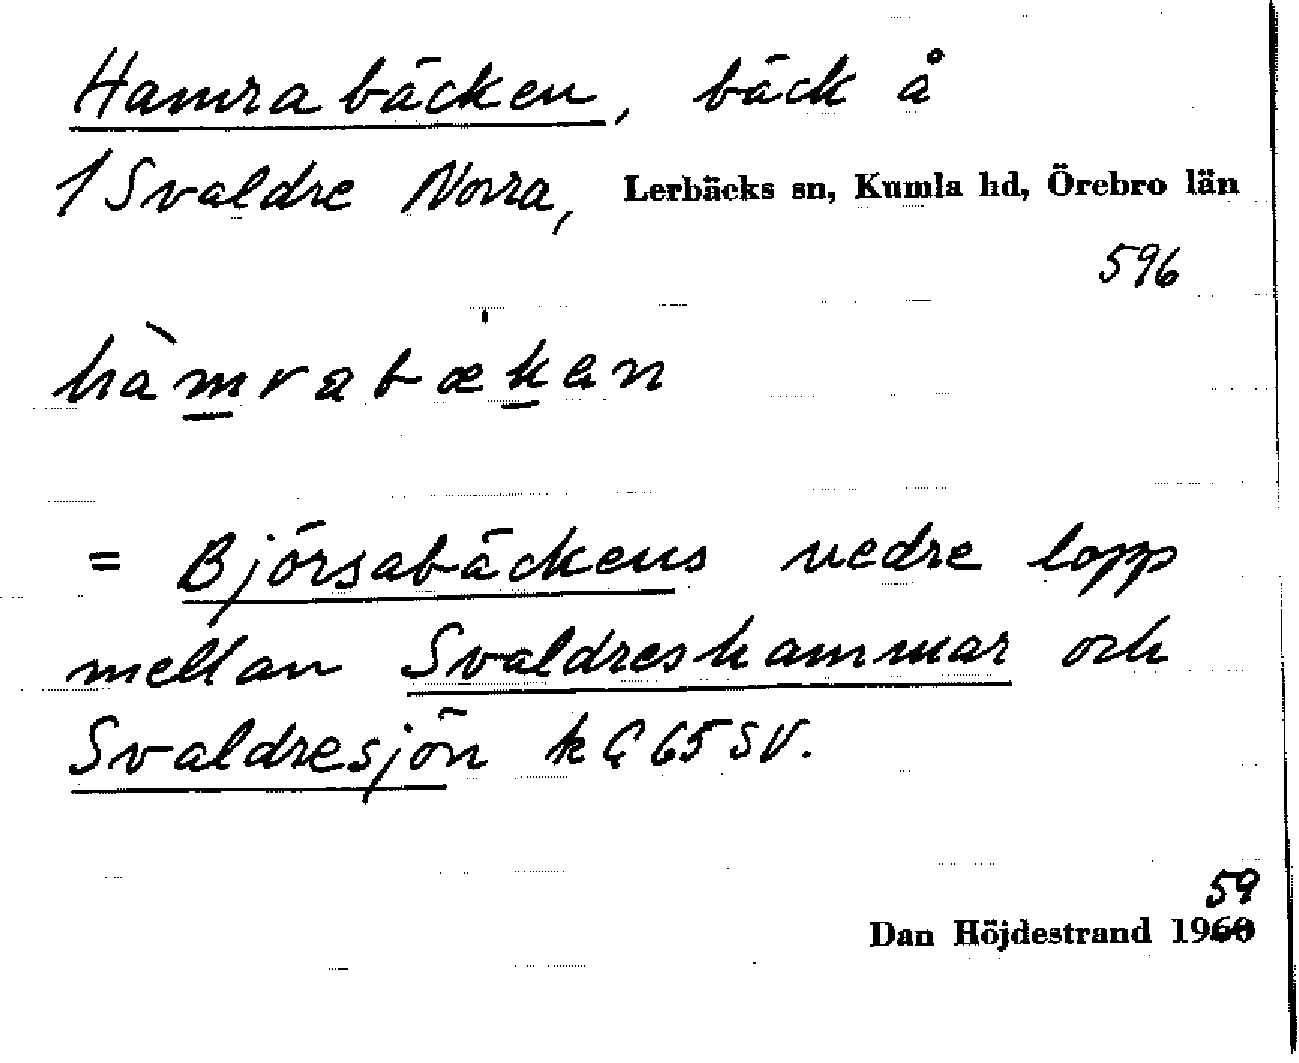 Hamrabäcken, bäck å
1 Svaldre Norra, Lerbäcks sn, Kumla hd, Örebro län
596
hàmrabækan
= Björsabäckens nedre lopp
mellan Svaldreshammar och
Svaldresjön k G 65 SV.
59
Dan Höjdestrand 1960